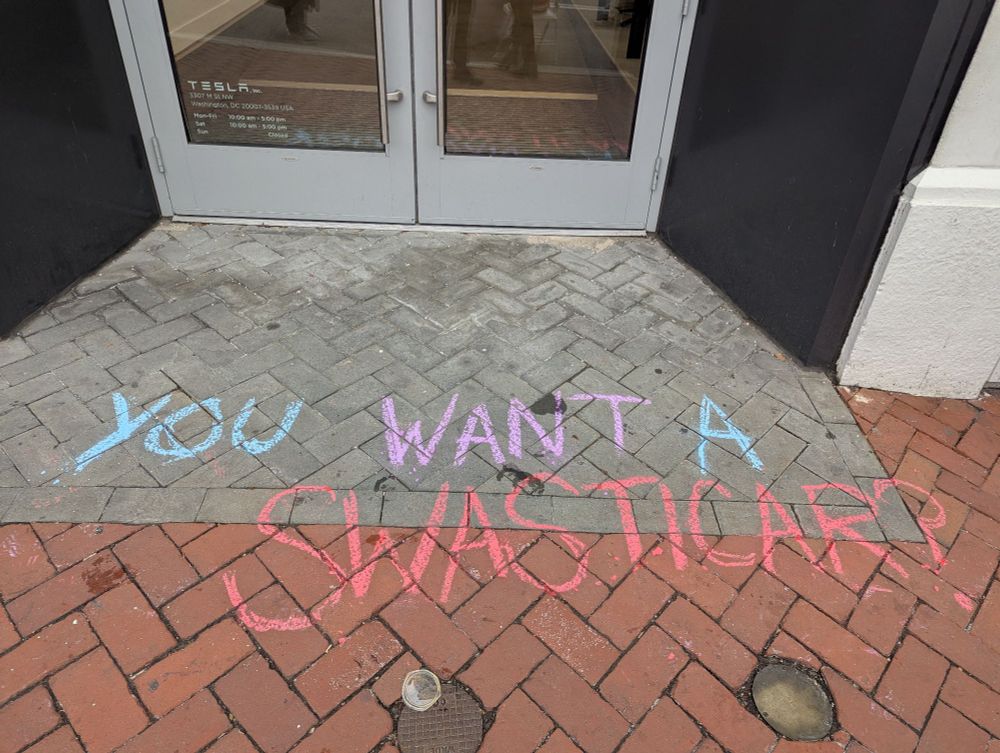 TESLA, INC.
3307 M St NW
Washington, DC 20007-3539 USA
Mon-Fri 10:00 am - 5:00 pm
Sat 10:00 am - 5:00 pm
Sun Closed
YOU WANT A
SWASTICAR?